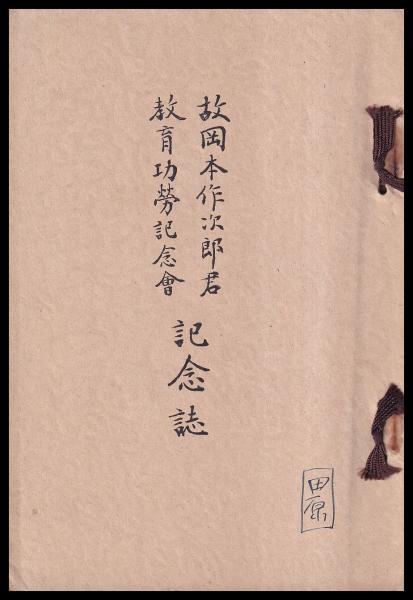 故岡本作次郎君
教育功勞記念會
記念誌
田原